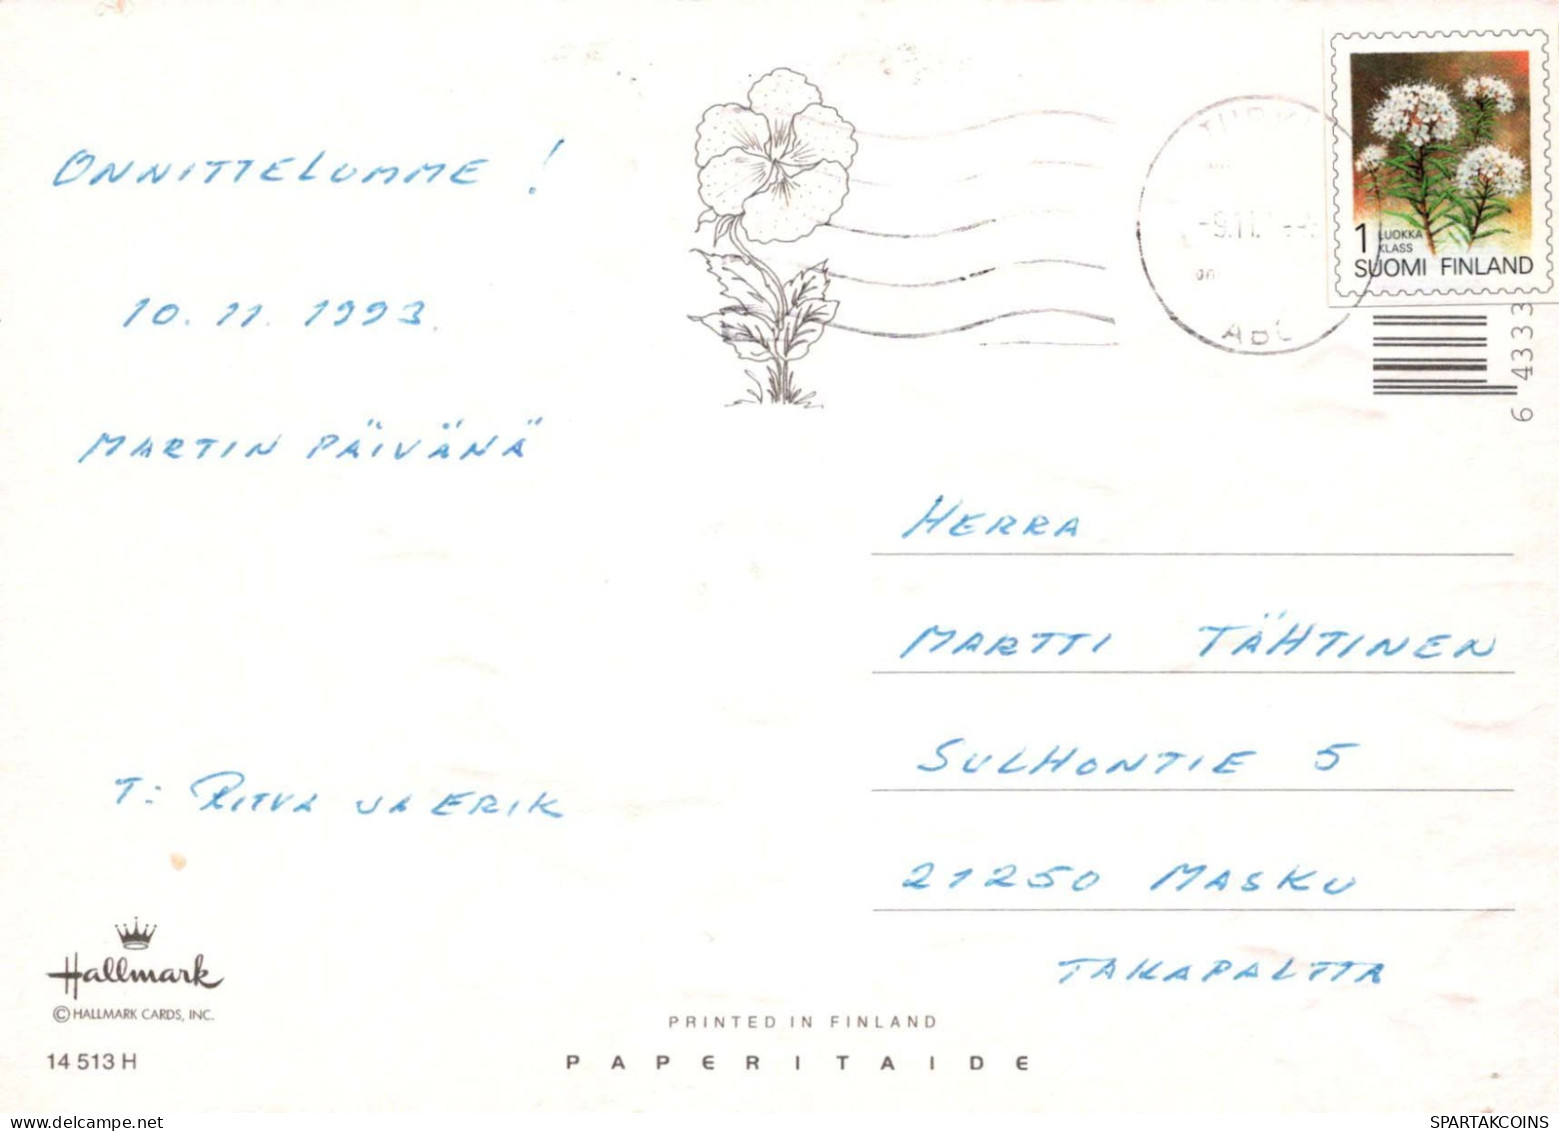 ONNITTELUMME !
10. 11. 1993.
MARTIN PÄIVÄNÄ
T: RITVA JA ERIK
-9.11.
1 LUOKKA
KLASS
SUOMI FINLAND
6 4333
HERRA
MARTTI TÄHTINEN
SULHONTIE 5
21250 MASKU
TAKAPALTTA
Hallmark
© HALLMARK CARDS, INC.
14 513 H
PRINTED IN FINLAND
PAPERITAIDE
SPARTAKCOINS